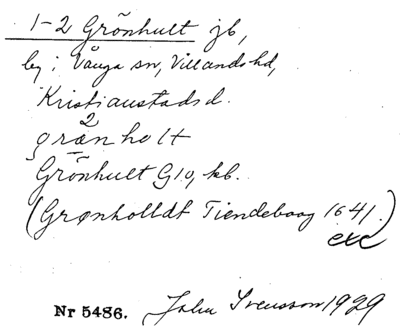 1-2 Grönhult jb,
by i Vånga sn, Villands hd,
Kristianstads l.
2
grænholt
Grönhult G10, kb.
(Grønholldt Tiendebog 1641.)
exc
Nr 5486. John Svensson 1929